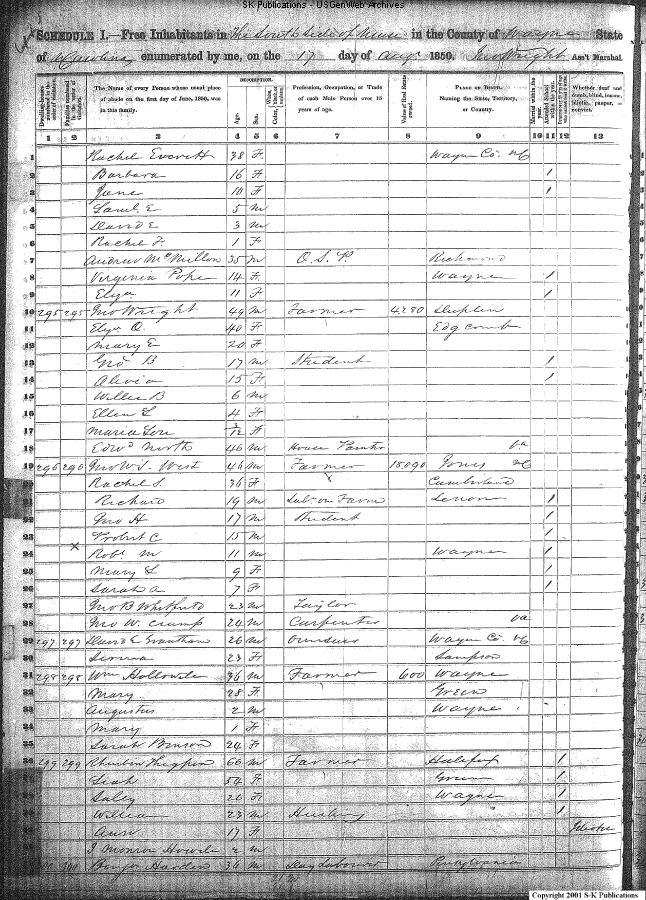 SK Publications - USGenWeb Archives
SCHEDULE I.—Free Inhabitants in The South Side of Neuse in the County of Wayne State
of Carolina enumerated by me, on the 17 day of Aug. 1850. Jno Wright Ass't Marshal.
Dwelling-houses numbered in the order of visitation. Families numbered in the order of visitation. The Name of every Person whose usual place of abode on the first day of June, 1850, was in this family. DESCRIPTION. Age. Sex. Color, White, black, or mulatto. Profession, Occupation, or Trade of each Male Person over 15 years of age. Value of Real Estate owned. PLACE OF BIRTH. Naming the State, Territory, or Country. Married within the year. Attended School within the year. Whether deaf and dumb, blind, insane, idiotic, pauper, or convict.
1 2 3 4 5 6 7 8 9 10 11 12 13
1 Rachel Everett 38 F Wayne Co. NC
2 Barbara 16 F /
3 June 10 F /
4 Saml. E 5 M
5 David E 3 M
6 Rachel F. 1 F
7 Andrew McMillon 35 M O. S. P. Richmond
8 Virginia Pope 14 F Wayne /
9 Eliza 11 F /
10 295 295 Jno Wright 49 M Farmer 4280 Duplin
11 Eliza O. 40 F Edgcomb
12 Mary E 20 F
13 Geo. B 17 M Student /
14 Olivia 15 F /
15 Willie B 6 M
16 Ellen L 4 F
17 Maria Lou 3/12 F
18 Edwd North 46 M House Painter Va
19 296 296 Jno W. J. West 46 M Farmer 18090 Jones NC
20 Rachel S. 36 F Cumberland
21 Richard 19 M Lab. on Farm Lenoir /
22 Jno H 17 M Student /
23 Probert C 15 M /
24 Robt M 11 M Wayne /
25 Mary L 9 F /
26 Sarah A 7 F /
27 Jno B 23 M Taylor
28 Jno W. Crump 24 M Carpenter Va
29 297 297 David E Grantham 26 M Wayne Co. NC
30 23 F Sampson
31 298 298 Wm Hollowell 36 M Farmer 600 Wayne
32 Mary 28 F Green
33 Augustus 2 M Wayne
34 Mary 1 F
35 Sarah Benson 24 F
36 299 299 Thigpen 66 M Farmer Halifax /
Leah 54 F Green /
Saley 26 F Wayne /
William 23 M /
Ann 17 F Idiotic
J Monroe Howell 2 M
300 Harden 34 M Day Laborer Pennsylvania
Copyright 2001 S-K Publications